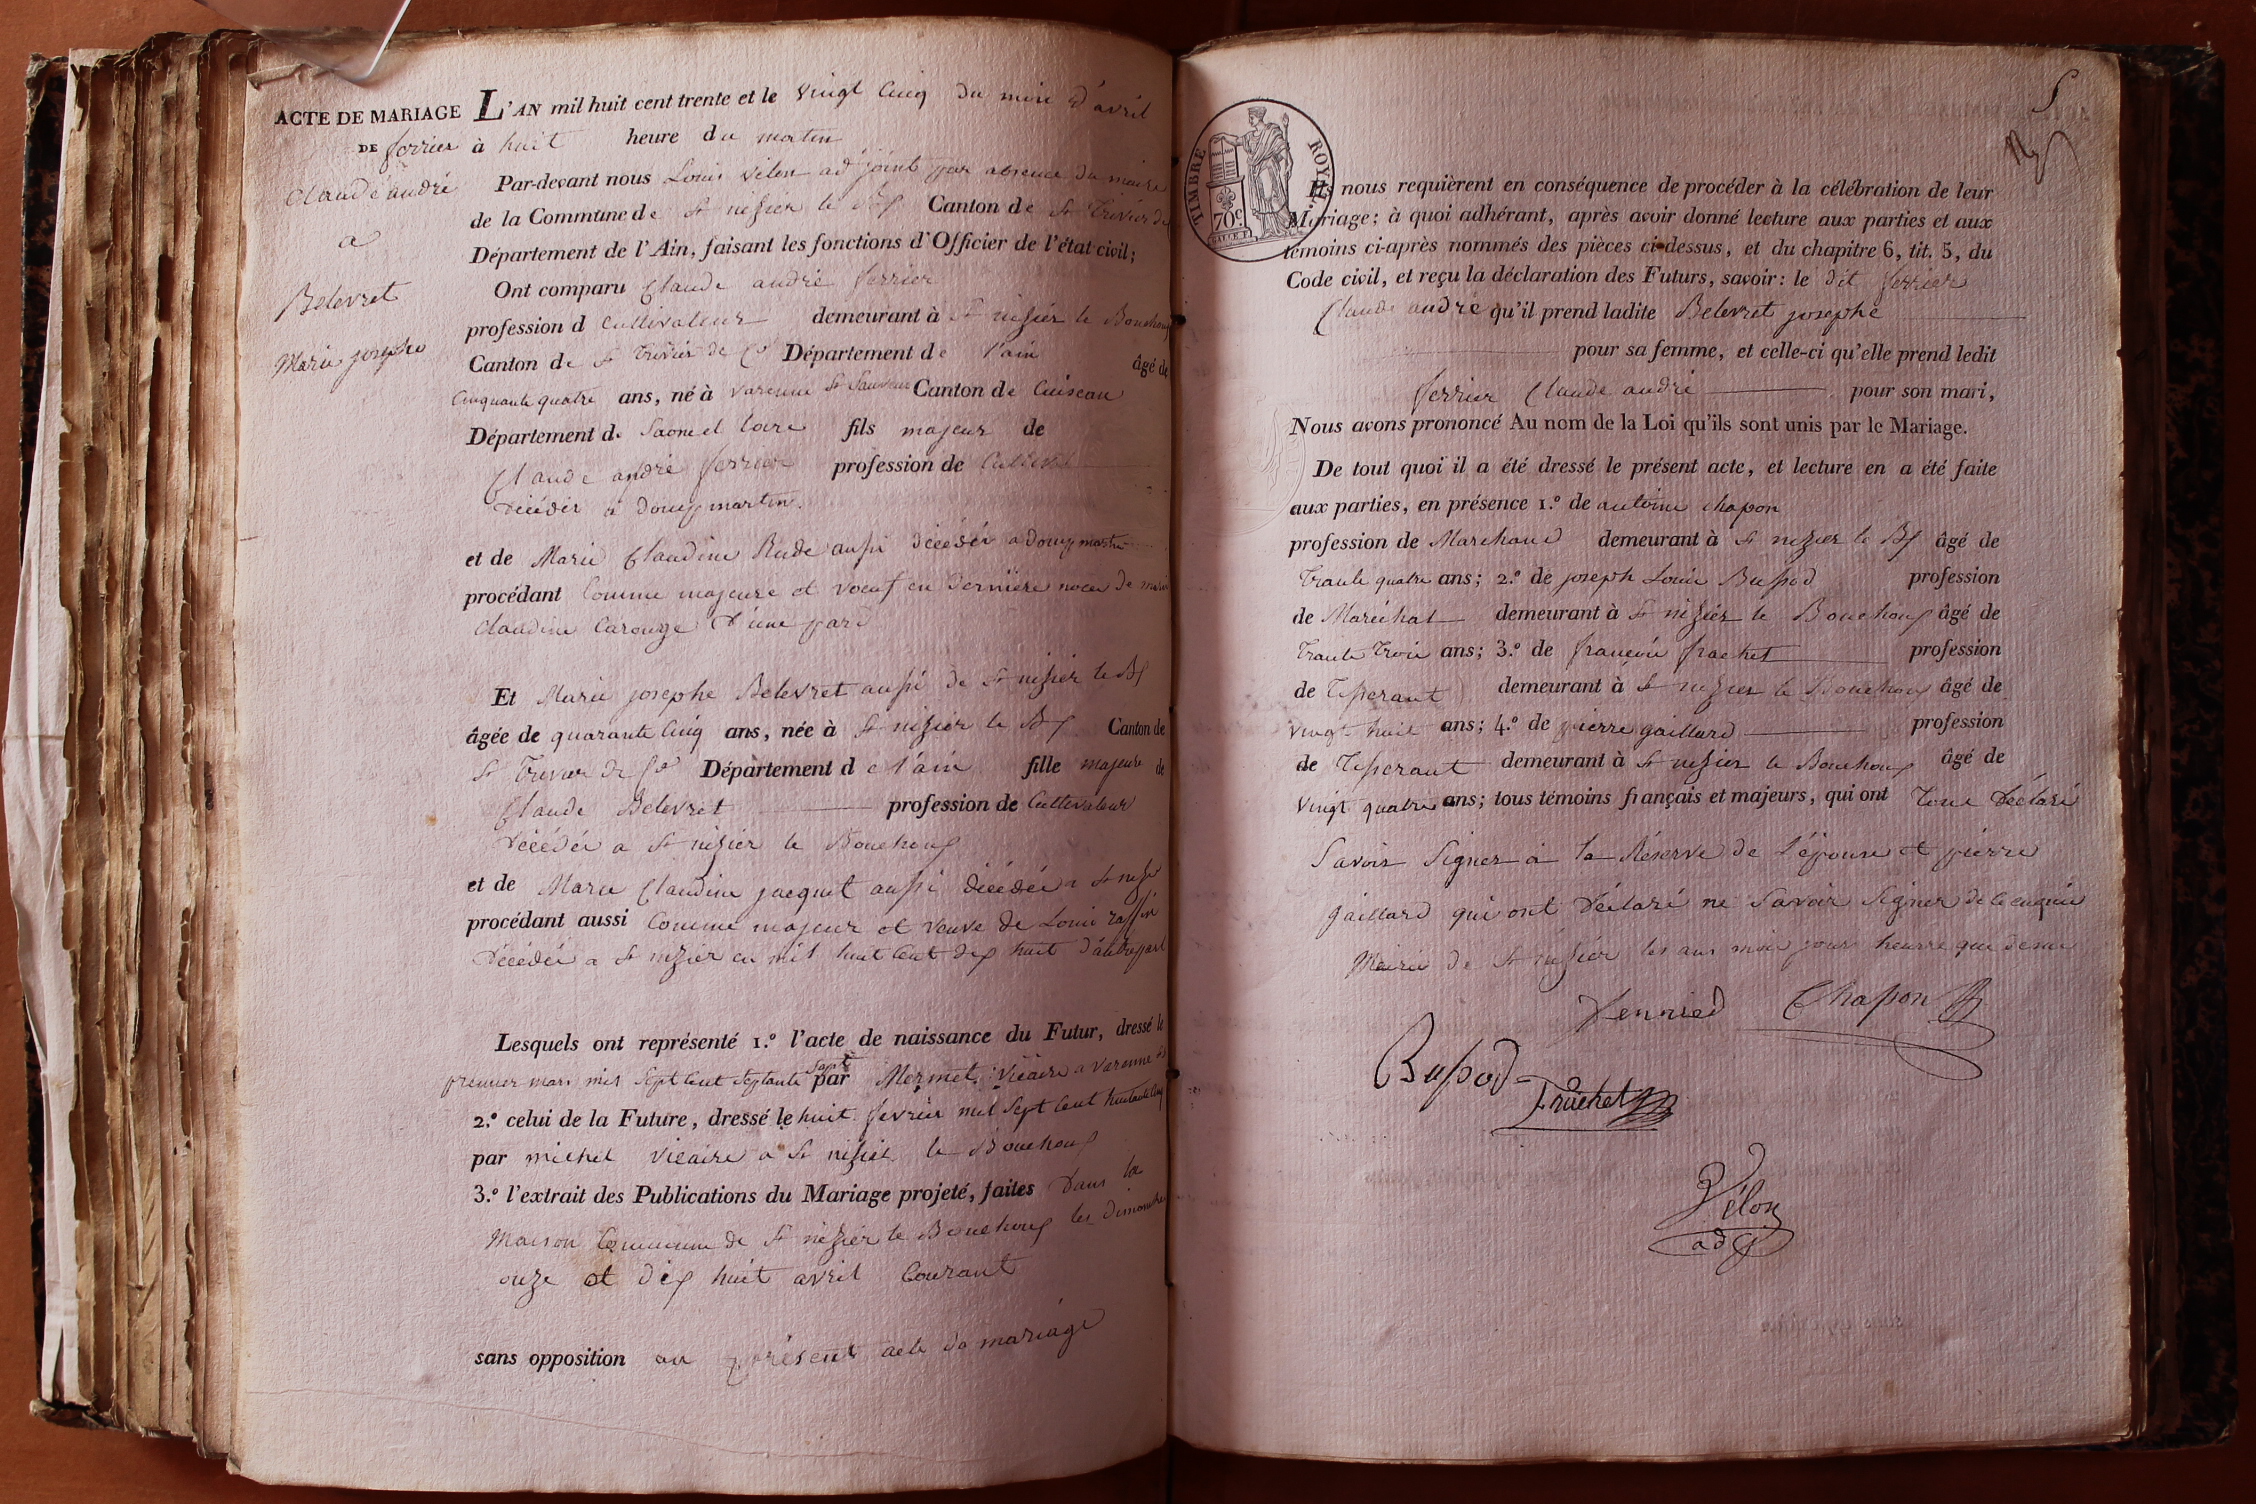 ACTE DE MARIAGE
DE ferrier
Claude andré
a
Belevret
Marie josephe
L'AN mil huit cent trente et le vingt Cinq du mois d'avril
à huit heure du matin
Par-devant nous Louis vélon adjoint par absence du maire
de la Commune de St nizier le Bx Canton de St Trivier de
Département de l'Ain, faisant les fonctions d'Officier de l'état civil;
Ont comparu Claude andré ferrier
profession d Cultivateur demeurant à St nizier le Bouchoux
Canton de St Trivier de Cs Département de l'ain âgé de
Cinquante quatre ans, né à varenne St Sauveur Canton de Cuiseau
Département de Saone et Loire fils majeur de
Claude andré ferrier profession de Cultivat
décédér a Domp martin.
et de Marie Claudine Rude aussi décédéi a Domp martin
procédant Comme majeure et voeuf en dernière noces de marie
Claudine Carouge d'une pard
Et Marie josephe Belevret aussi de St nizier le Bx
âgée de quarante Cinq ans, née à St nizier le Bx Canton de
St Trivier de Cs Département de l'ain fille majeure de
Claude Belevret profession de Cultivateur
décédéi a St nizier le Bouchoux
et de Marie Claudine jacquet aussi décédéi a St nizier
procédant aussi Comme majeur et veuve de Louis raffin
décédéi a St nizier en mil huit Cent dix huit d'autrepart
Lesquels ont représenté 1.º l'acte de naissance du Futur, dressé le
premier mars mil Sept Cent Septante Sept par Mermet vicaire a varenne
2.º celui de la Future, dressé le huit fevrier mil Sept Cent huitante Cinq
par michel vicaire a St nizier le Bouchoux
3.º l'extrait des Publications du Mariage projeté, faites dans la
Maison Commune de St nizier le Bouchoux les dimanches
onze et dix huit avril Courant
sans opposition au présent acte de mariage
TIMBRE ROYAL
70c
Ils nous requièrent en conséquence de procéder à la célébration de leur
Mariage; à quoi adhérant, après avoir donné lecture aux parties et aux
témoins ci-après nommés des pièces ci-dessus, et du chapitre 6, tit. 5, du
Code civil, et reçu la déclaration des Futurs, savoir: le dit ferrier
Claude andré qu'il prend ladite Belevret josephe
pour sa femme, et celle-ci qu'elle prend ledit
ferrier Claude andré pour son mari,
Nous avons prononcé Au nom de la Loi qu'ils sont unis par le Mariage.
De tout quoi il a été dressé le présent acte, et lecture en a été faite
aux parties, en présence 1.º de antoine chapon
profession de Marchand demeurant à St nizier le Bx âgé de
Trante quatre ans; 2.º de joseph Louis Bussod profession
de Maréchal demeurant à St nizier le Bouchoux âgé de
Trante Trois ans; 3.º de françois frachet profession
de Tisserant demeurant à St nizier le Bouchoux âgé de
vingt huit ans; 4.º de pierre gaillard profession
de Tisserant demeurant à St nizier le Bouchoux âgé de
vingt quatre ans; tous témoins français et majeurs, qui ont Tous déclaré
Savoir Signer a la Réserve de l'épouse et pierre
gaillard qui ont déclaré ne Savoir Signer de ce enquis
Mairie de St nizier les ans mois jour heurre que dessus
Chapon
Bussod
Frachet
Vélon
adj